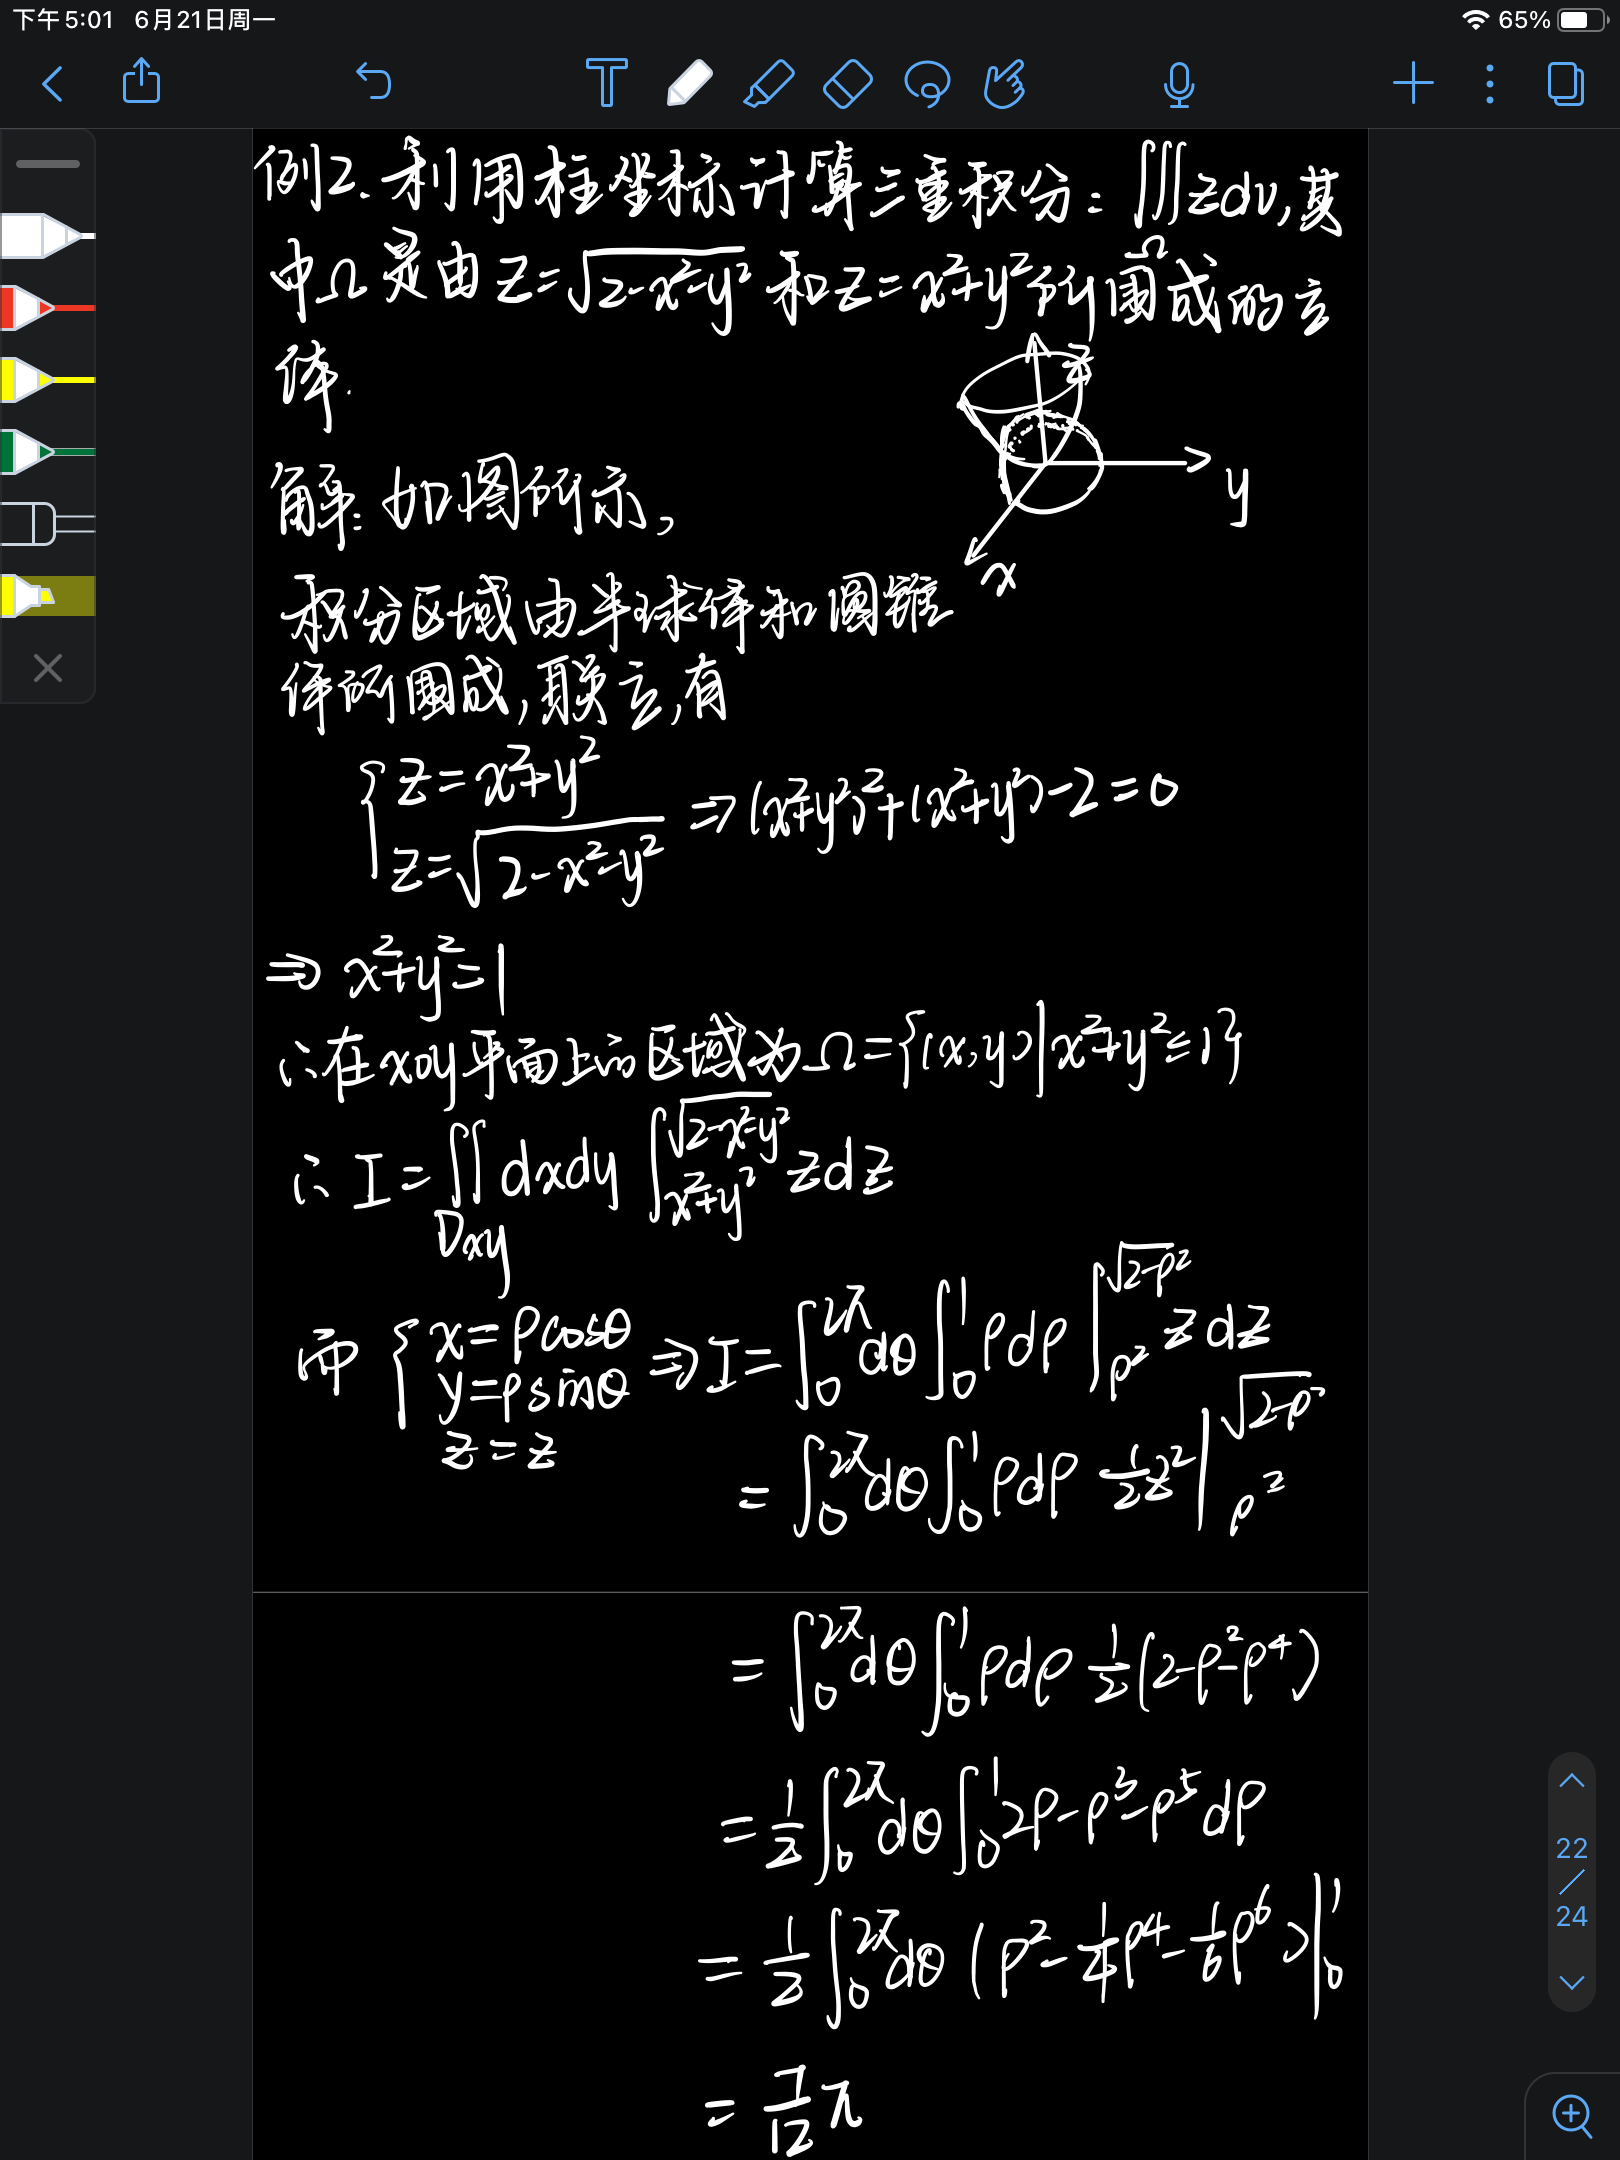 下午5:01 6月21日周一
65%
例2.利用柱坐标计算三重积分:∭zdv,其
Ω
中Ω是由z=√(2-x²-y²)和z=x²+y²所围成的立
体.
z
y
x
解:如图所示,
积分区域由半球体和圆锥
体所围成,联立,有
{z=x²+y²
z=√(2-x²-y²) ⇒(x²+y²)²+(x²+y²)-2=0
⇒x²+y²=1
∴在xoy平面上的区域为Ω={(x,y)|x²+y²≤1}
∴I=∬_{Dxy} dxdy ∫_{x²+y²}^{√(2-x²-y²)} zdz
而{x=ρcosθ
y=ρsinθ
z=z
⇒I=∫_0^{2π}dθ∫_0^1 ρdρ∫_{ρ²}^{√(2-ρ²)} zdz
=∫_0^{2π}dθ∫_0^1 ρdρ ½z²|_{ρ²}^{√(2-ρ²)}
=∫_0^{2π}dθ∫_0^1 ρdρ ½(2-ρ²-ρ⁴)
=½∫_0^{2π}dθ∫_0^1 2ρ-ρ³-ρ⁵dρ
=½∫_0^{2π}dθ(ρ²-¼ρ⁴-⅙ρ⁶)|_0^1
=7/12 π
22
/
24